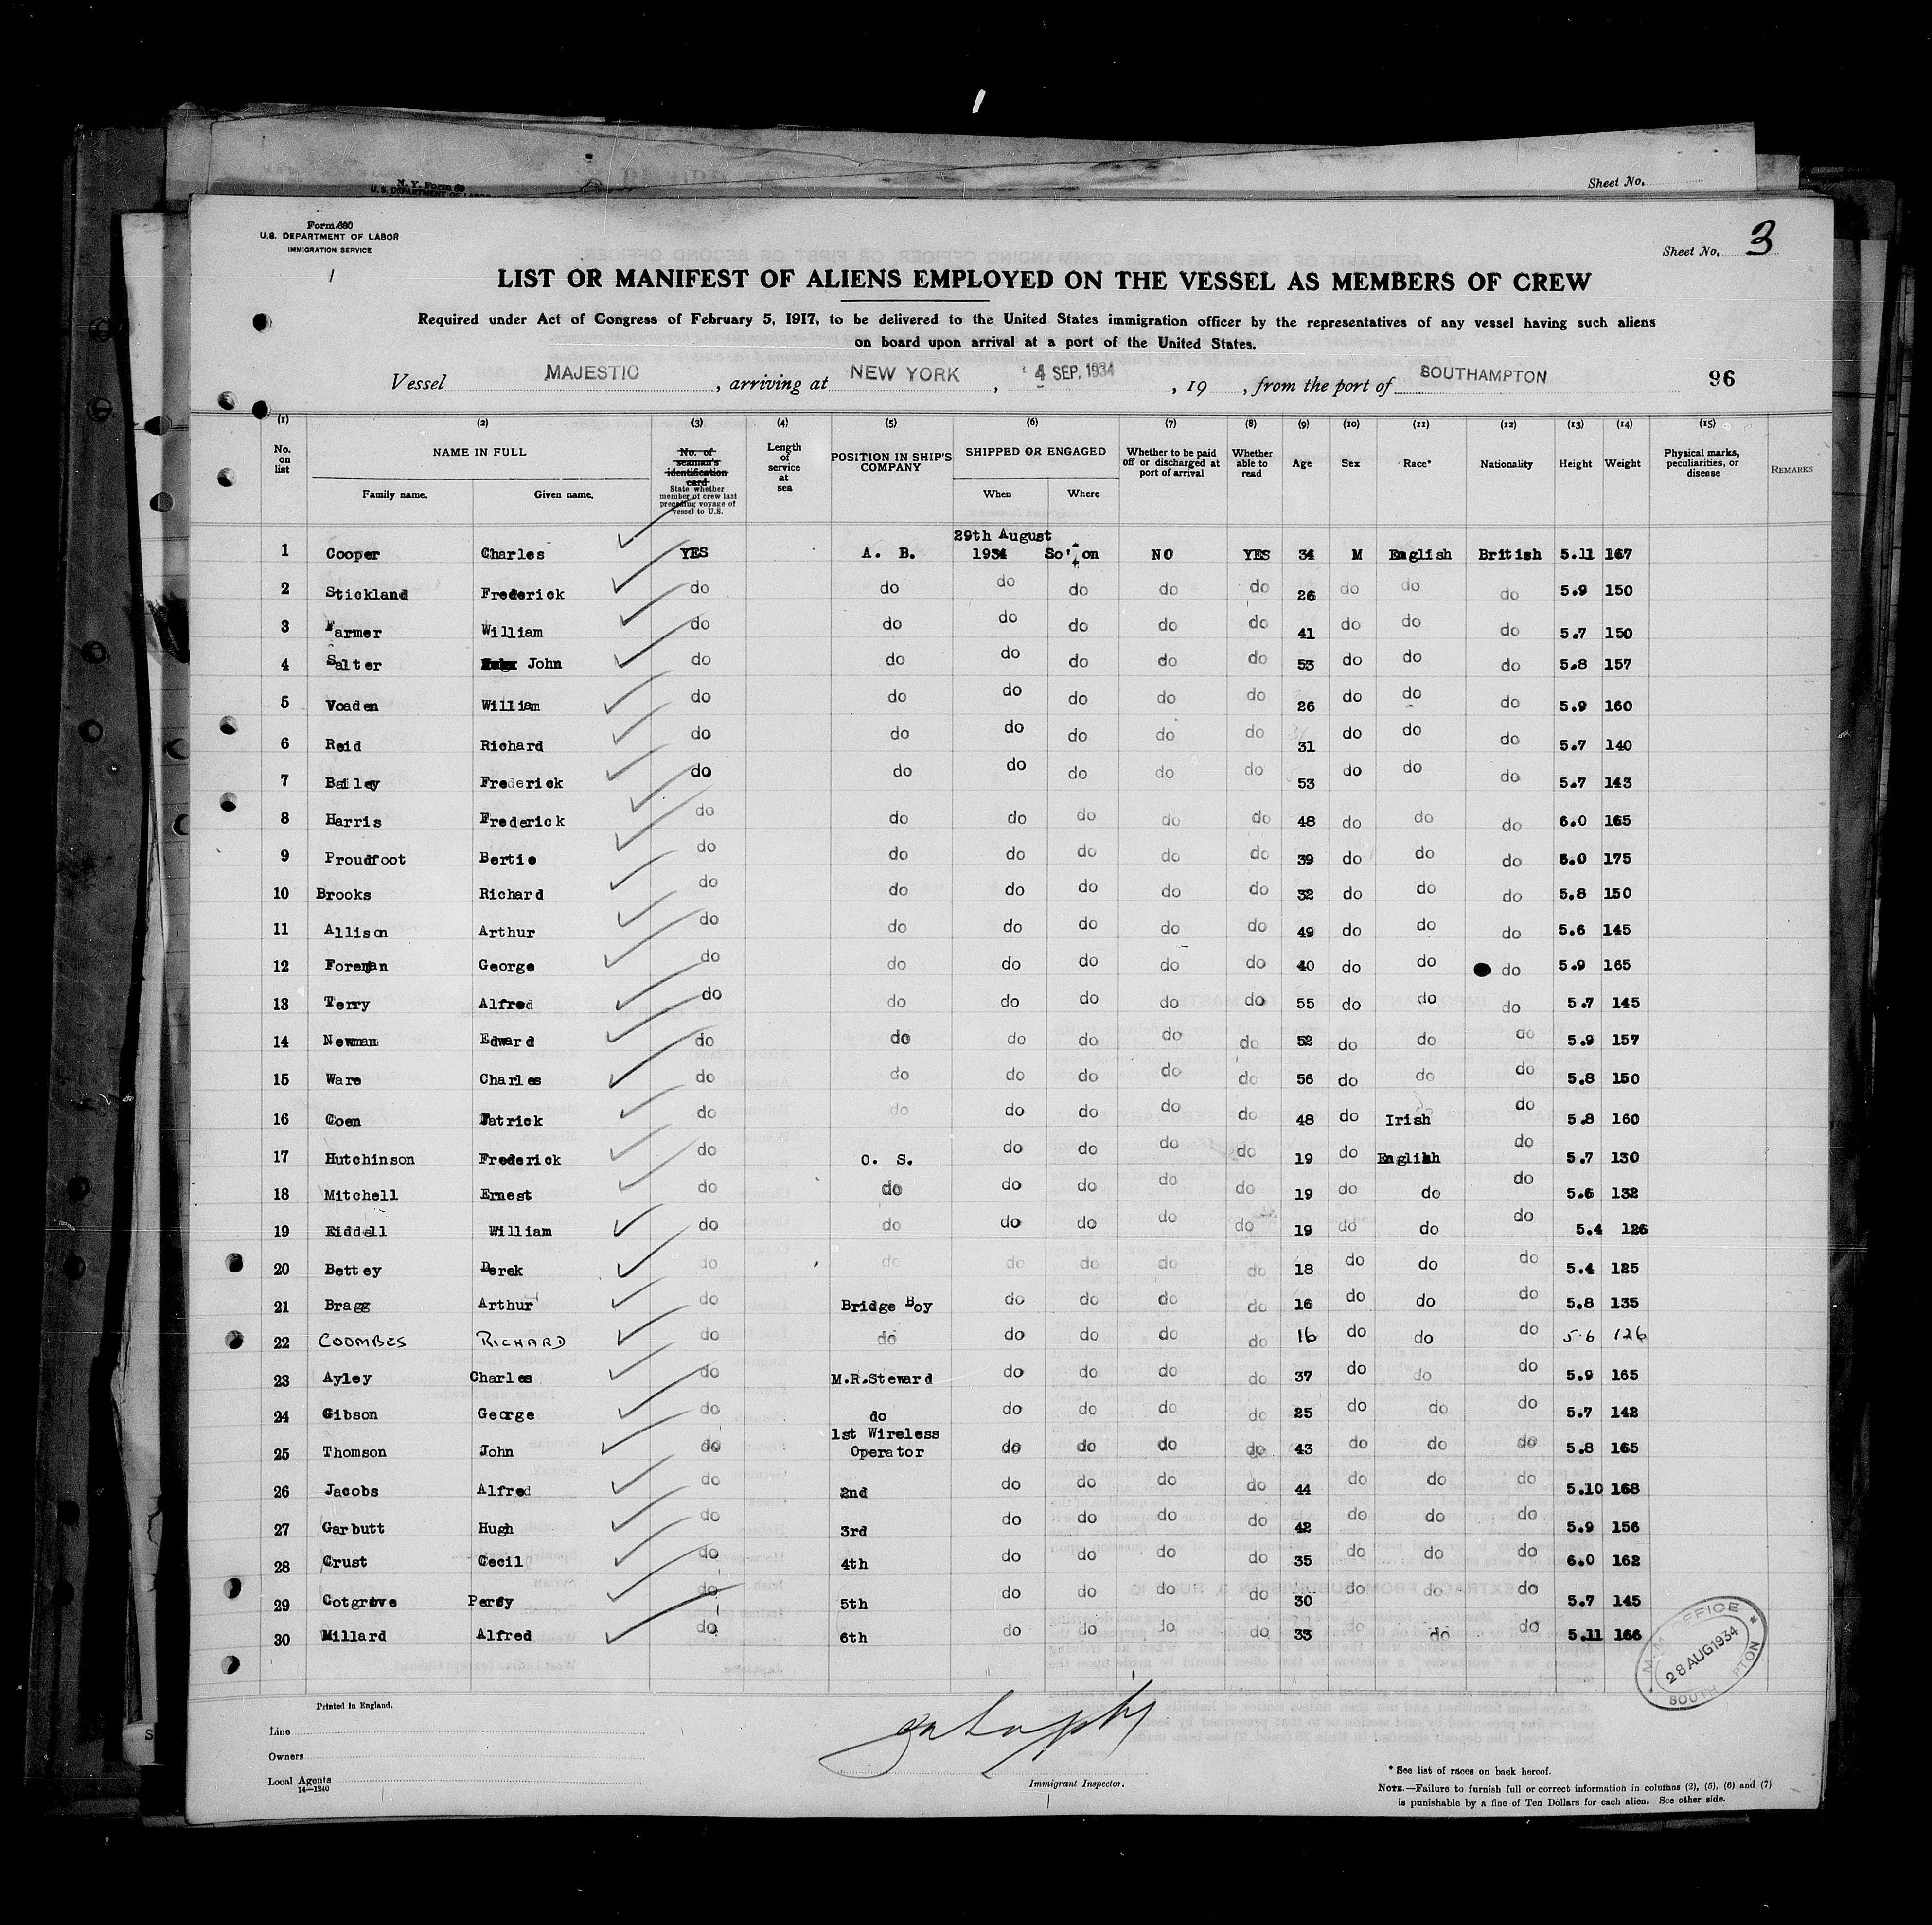 Sheet No.
N. Y. Form 89
U. S. DEPARTMENT OF LABOR
Form 680
U.S. DEPARTMENT OF LABOR
IMMIGRATION SERVICE
Sheet No. 3
LIST OR MANIFEST OF ALIENS EMPLOYED ON THE VESSEL AS MEMBERS OF CREW
Required under Act of Congress of February 5, 1917, to be delivered to the United States immigration officer by the representatives of any vessel having such aliens
on board upon arrival at a port of the United States.
Vessel MAJESTIC, arriving at NEW YORK, 4 SEP. 1934, 19 , from the port of SOUTHAMPTON 96
(1) (2) (3) (4) (5) (6) (7) (8) (9) (10) (11) (12) (13) (14) (15)
No. on list NAME IN FULL Family name. Given name. No. of seaman's identification card State whether member of crew last preceding voyage of vessel to U.S. Length of service at sea POSITION IN SHIP'S COMPANY SHIPPED OR ENGAGED When Where Whether to be paid off or discharged at port of arrival Whether able to read Age Sex Race* Nationality Height Weight Physical marks, peculiarities, or disease REMARKS
29th August
1 Cooper Charles YES A. B. 1934 So'ton NO YES 34 M English British 5.11 167
2 Stickland Frederick do do do do do do 26 do do do 5.9 150
3 Farmer William do do do do do do 41 do do do 5.7 150
4 Salter John do do do do do do 53 do do do 5.8 157
5 Voaden William do do do do do do 26 do do do 5.9 160
6 Reid Richard do do do do do do 31 do do do 5.7 140
7 Bailey Frederick do do do do do do 53 do do do 5.7 143
8 Harris Frederick do do do do do do 48 do do do 6.0 165
9 Proudfoot Bertie do do do do do do 39 do do do 6.0 175
10 Brooks Richard do do do do do do 32 do do do 5.8 150
11 Allison Arthur do do do do do do 49 do do do 5.6 145
12 Foreman George do do do do do do 40 do do do 5.9 165
13 Terry Alfred do do do do do do 55 do do do 5.7 145
14 Newman Edward do do do do do do 52 do do do 5.9 157
15 Ware Charles do do do do do do 56 do do do 5.8 150
16 Coen Patrick do do do do do do 48 do Irish do 5.8 160
17 Hutchinson Frederick do O. S. do do do do 19 do English do 5.7 130
18 Mitchell Ernest do do do do do do 19 do do do 5.6 132
19 Kiddell William do do do do do do 19 do do do 5.4 126
20 Bettey Derek do do do do do do 18 do do do 5.4 125
21 Bragg Arthur do Bridge Boy do do do do 16 do do do 5.8 135
22 COOMBES RICHARD do do do do do do 16 do do do 5.6 126
23 Ayley Charles do M.R.Steward do do do do 37 do do do 5.9 165
24 Gibson George do do do do do do 25 do do do 5.7 142
1st Wireless
25 Thomson John do Operator do do do do 43 do do do 5.8 165
26 Jacobs Alfred do 2nd do do do do 44 do do do 5.10 168
27 Garbutt Hugh do 3rd do do do do 42 do do do 5.9 156
28 Crust Cecil do 4th do do do do 35 do do do 6.0 162
29 Cotgrove Percy do 5th do do do do 30 do do do 5.7 145
30 Millard Alfred do 6th do do do do 33 do do do 5.11 166
OFFICE
28 AUG 1934
SOUTH PTON
Printed in England.
Line
Owners
Local Agents
14—1240
Immigrant Inspector.
* See list of races on back hereof.
NOTE.—Failure to furnish full or correct information in columns (2), (5), (6) and (7)
is punishable by a fine of Ten Dollars for each alien. See other side.